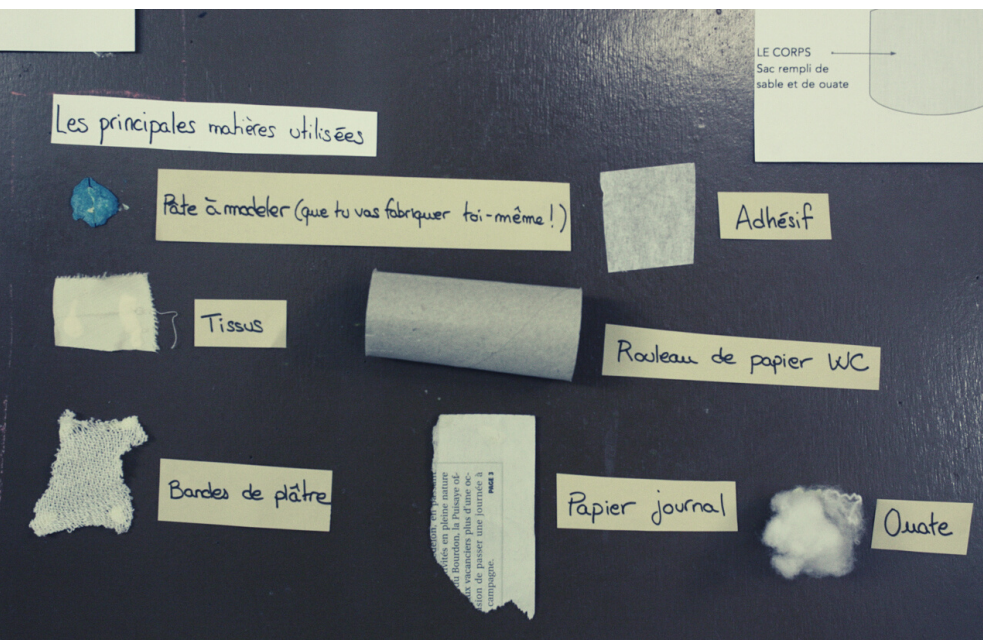 LE CORPS
Sac rempli de
sable et de ouate
Les principales matières utilisées
Pâte à modeler (que tu vas fabriquer toi-même !)
Adhésif
Tissus
Rouleau de papier WC
Bandes de plâtre
Papier journal
Ouate
vités en pleine nature
du Bourdon, la Puisaye of-
ux vacanciers plus d'une oc-
sion de passer une journée à
campagne.
PAGE 3